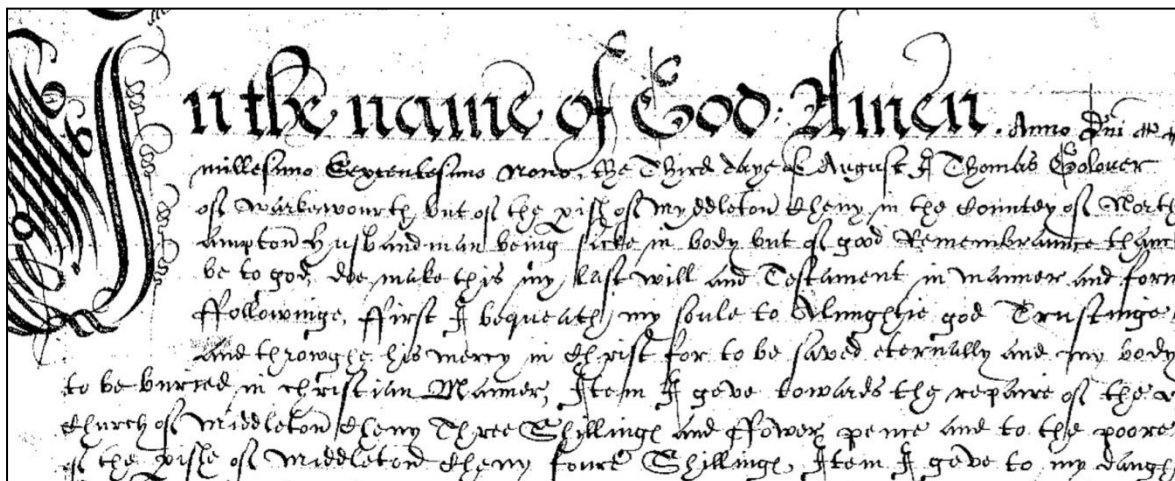 In the name of God: Amen. Anno Dni
millesimo Sexcentesimo Nono, the Third daye of August I Thomas Golover
of Warkewourth but of the pish of Myddleton Cheny in the Countey of North
ampton Husbandman being sicke in body but of good Remembraunce thanc
be to god, doe make this my last will and Testament in manner and form
ffollowinge, ffirst I bequeath my soule to Almightie god Trustinge
and throwghe his mercy in Christ for to be saved eternally and my body
to be buried in christian Manner, Item I geve towards the repaire of the
Church of Middleton Cheny Three Shillings and ffower pence and to the poore
of the pishe of Middleton Cheny foure Shillings, Item I geve to my daugh